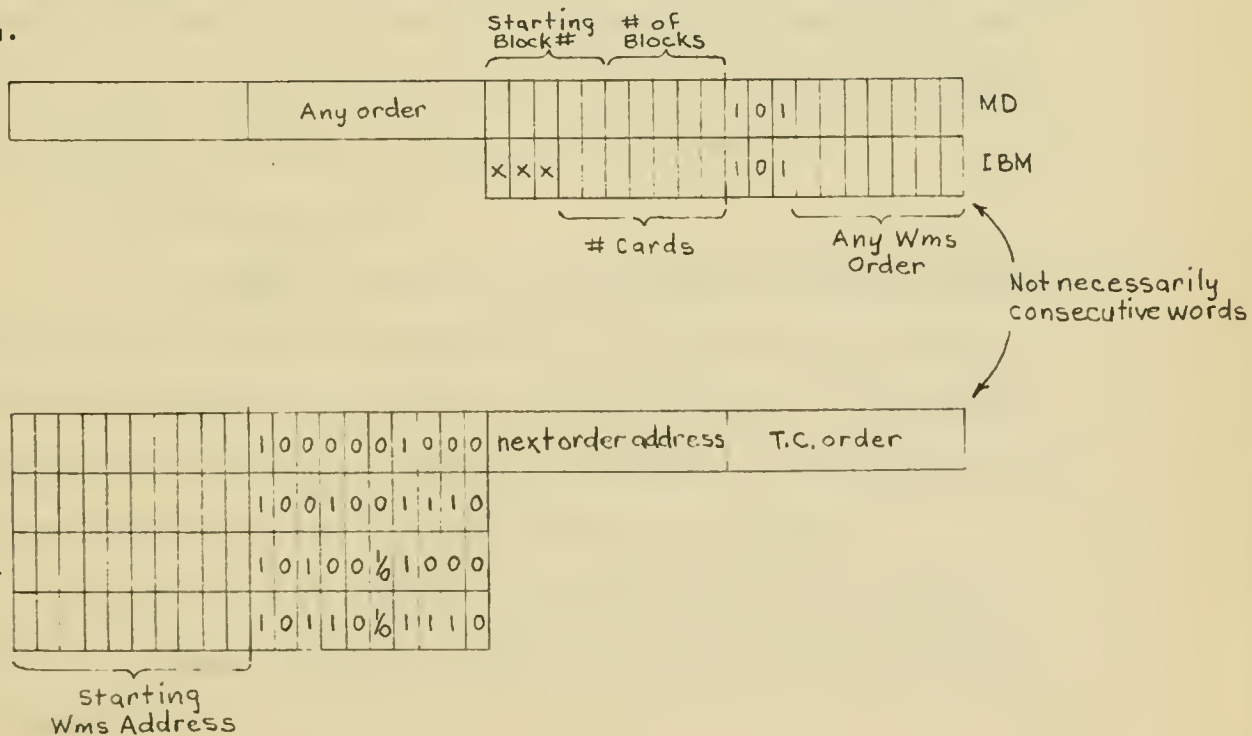 Starting # of
Block# Blocks
Any order 1 0 1 MD
x x x 1 0 1 IBM
# Cards Any Wms
Order
Not necessarily
consecutive words
1 0 0 0 0 0 1 0 0 0 next order address T.C. order
1 0 0 1 0 0 1 1 1 0
1 0 1 0 0 1/0 1 0 0 0
1 0 1 1 0 1/0 1 1 1 0
Starting
Wms Address